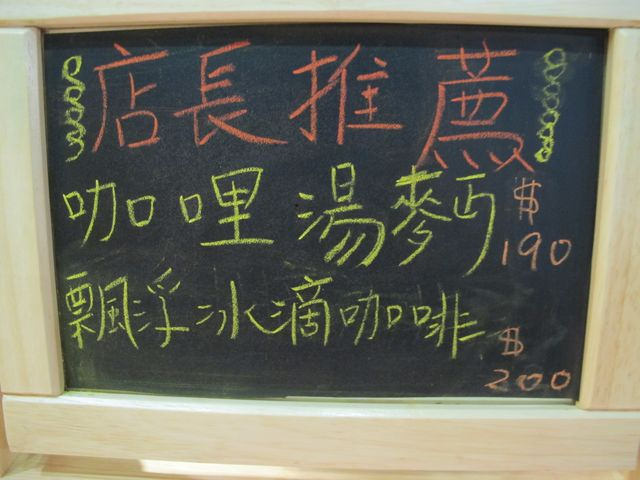 店長推薦
咖哩湯麥丐 $190
飄浮冰滴咖啡 $200